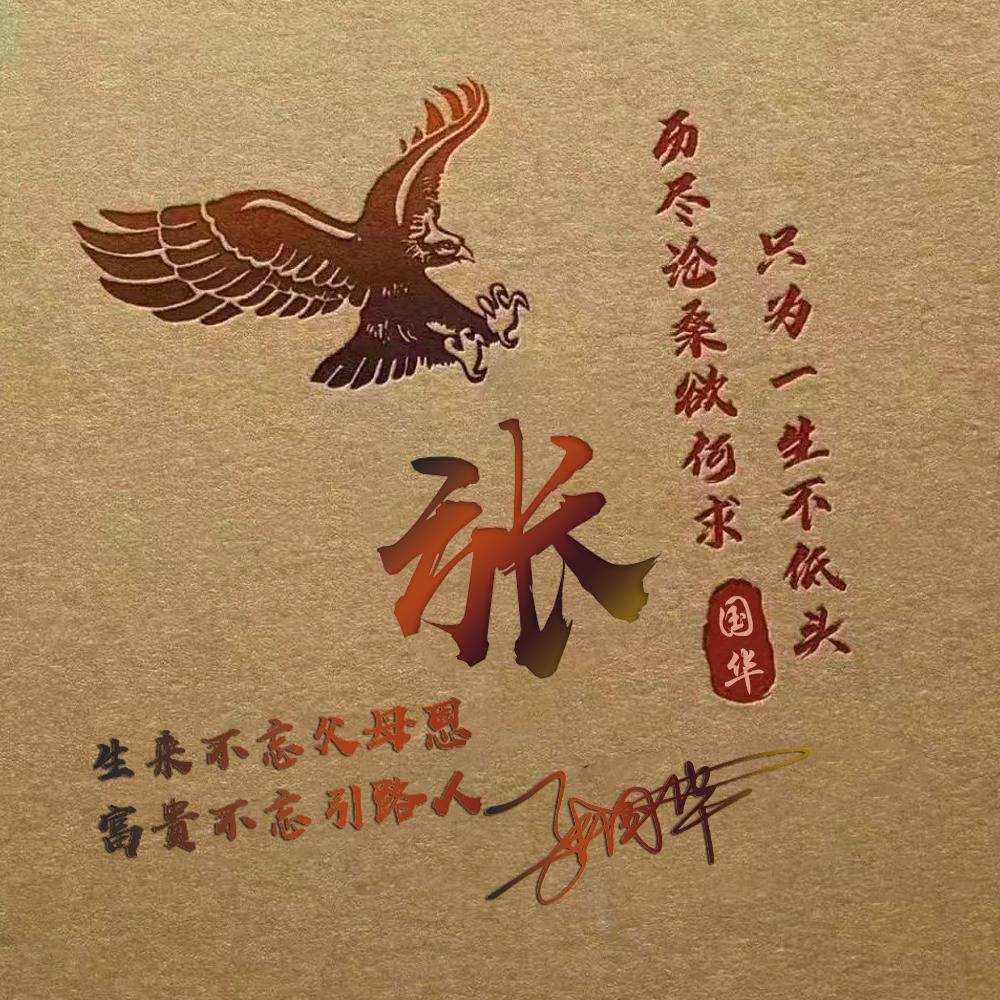 历尽沧桑欲何求
只为一生不低头
国华
张
生来不忘父母恩
富贵不忘引路人
张国华